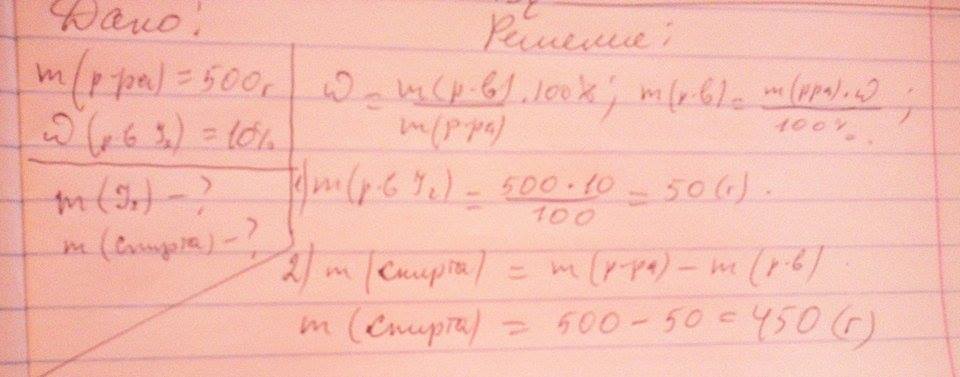 Дано:
Решение:
m(р-ра) = 500г
ω(р.в I₂) = 10%
m(I₂) - ?
m(спирта) - ?
ω = m(р-в) · 100% / m(р-ра) ; m(р-в) = m(рра) · ω / 100% ;
1) m(р-в I₂) = 500 · 10 / 100 = 50(г).
2) m(спирта) = m(р-ра) - m(р-в)
m(спирта) = 500 - 50 = 450(г)